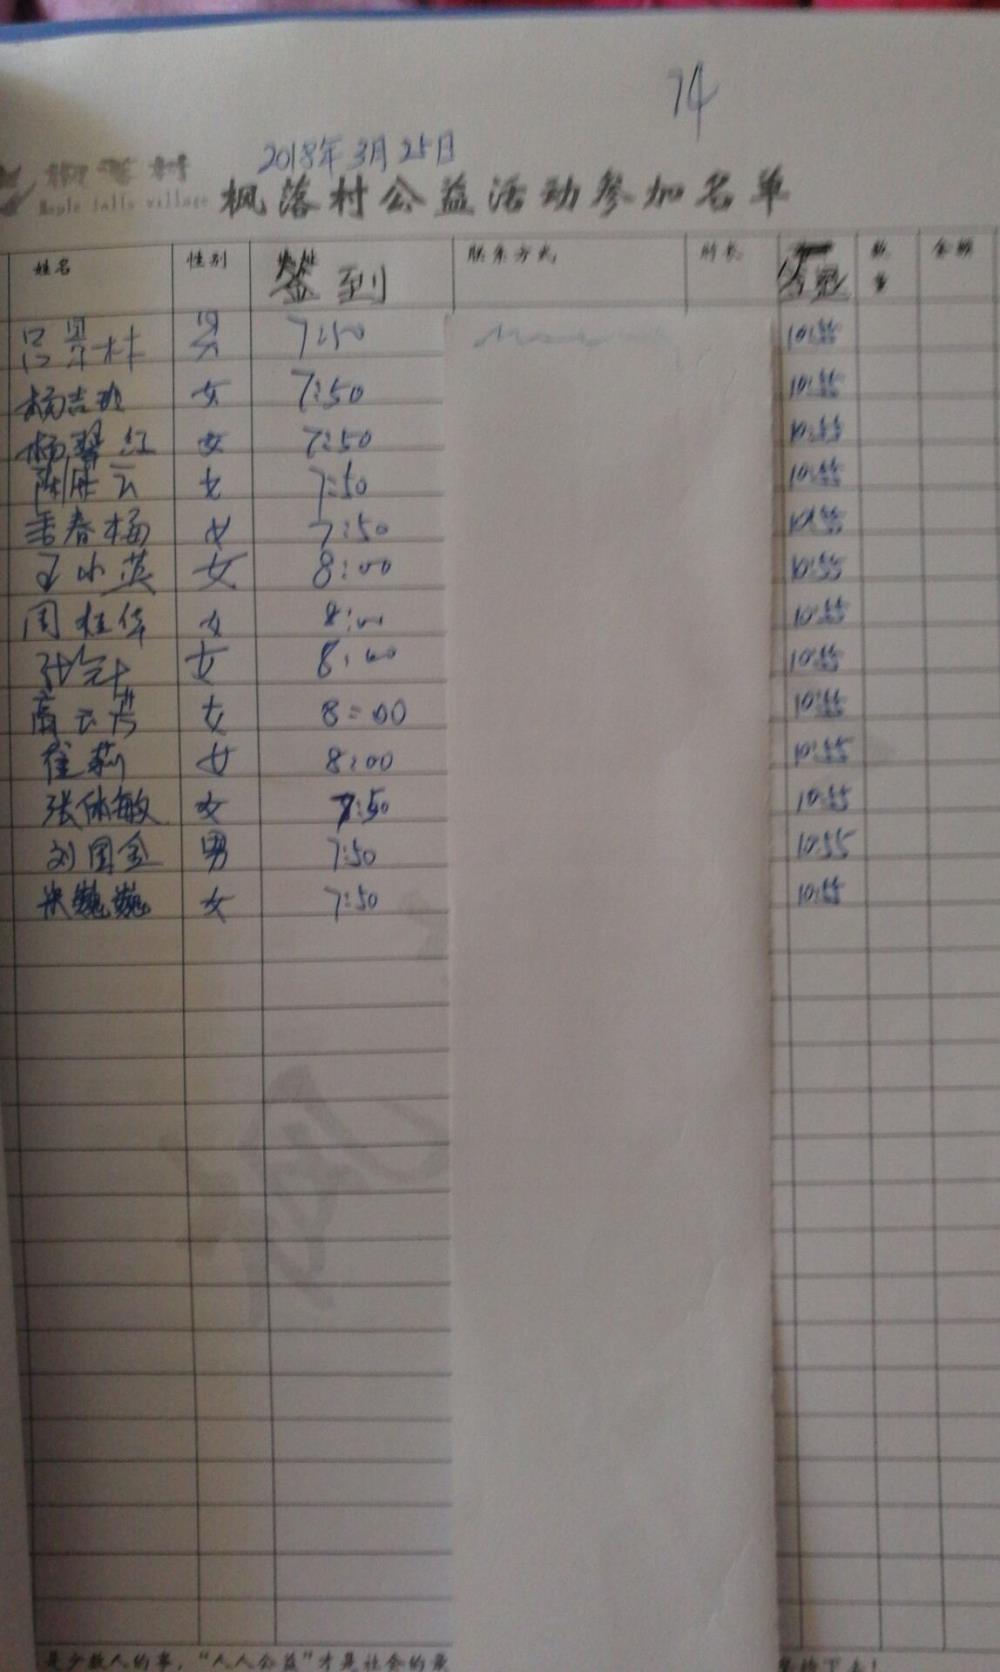 74
2018年3月25日
Maple falls village
枫落村公益活动参加名单
姓名 性别 签到 联系方式 时长 数量 金额
吕昇林 男 7:50 10:55
杨吉 女 7:50 10:55
杨翠红 女 7:50 10:55
陈 云 女 7:50 10:55
春梅 女 7:50 10:55
王小英 女 8:00 10:55
周桂华 女 8:00 10:55
女 8:00 10:55
高云芳 女 8:00 10:55
崔莉 女 8:00 10:55
张休敏 女 7:50 10:55
刘国金 男 7:50 10:55
巍巍 女 7:50 10:55
是少数人的事，“人人公益”才是社会的